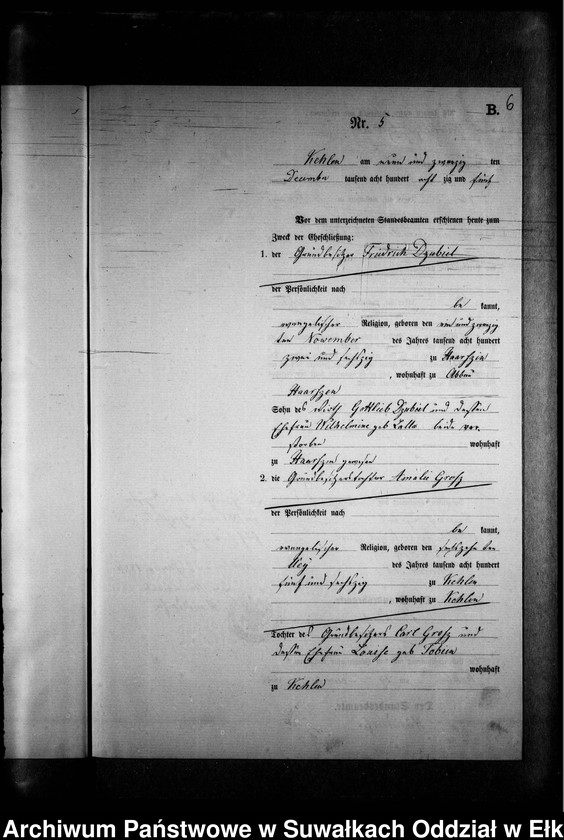 B. 6
Nr. 5
Kehlen am neun und zwanzig ten
Dezember tausend acht hundert acht zig und fünf
Vor dem unterzeichneten Standesbeamten erschienen heute zum
Zweck der Eheschließung:
1. der Grundbesitzer Friedrich Dzubiel
der Persönlichkeit nach
be kannt,
evangelischer Religion, geboren den ein und zwanzig
ten November des Jahres tausend acht hundert
zwei und sechszig zu Haarszen
, wohnhaft zu Abbau
Haarszen
Sohn des Wirth Gottlieb Dzubiel und dessen
Ehefrau Wilhelmine geb Latta beide ver
storben wohnhaft
zu Haarszen gewesen
2. die Grundbesitzerstochter Amalie Grosz
der Persönlichkeit nach
be kannt,
evangelischer Religion, geboren den sechszehn ten
May des Jahres tausend acht hundert
fünf und sechszig zu Kehlen
, wohnhaft zu Kehlen
Tochter des Grundbesitzers Carl Grosz und
dessen Ehefrau Louise geb
wohnhaft
zu Kehlen
Archiwum Państwowe w Suwałkach Oddział w Ełk